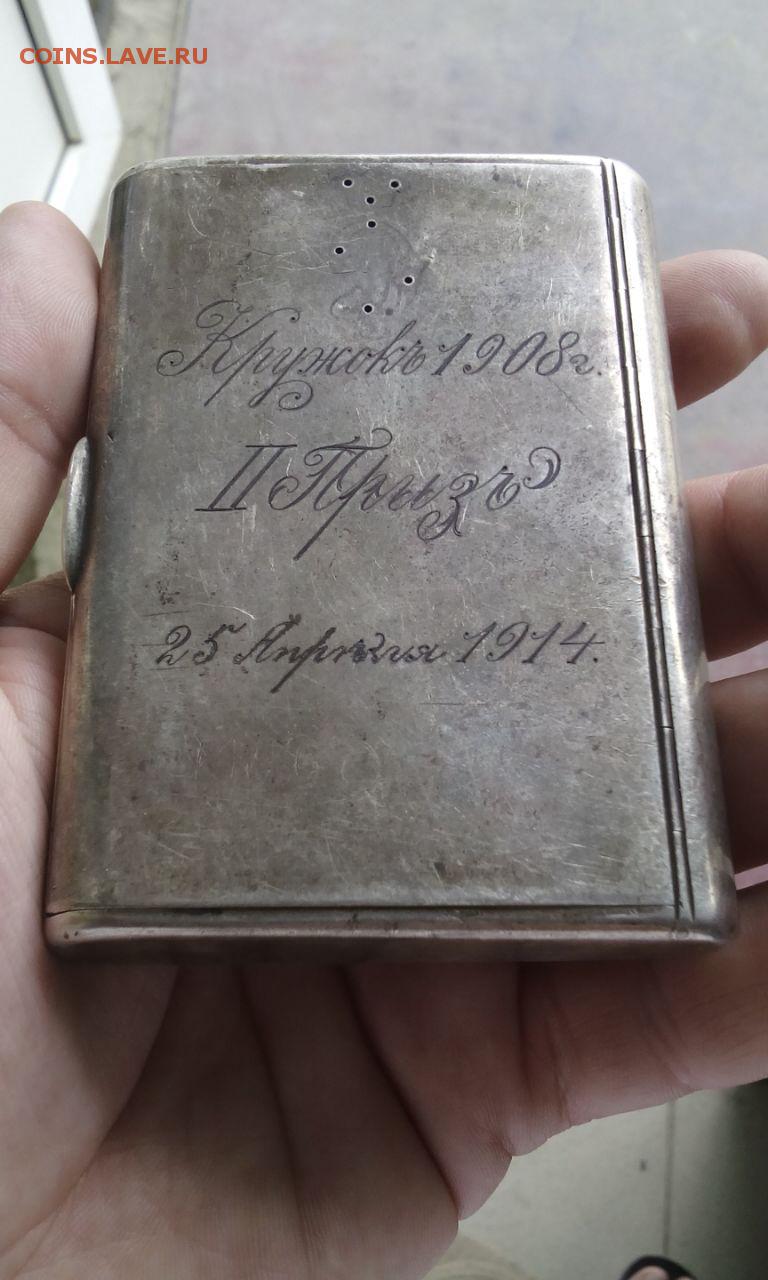 COINS.LAVE.RU
Кружокъ 1908 г.
II Призъ
25 Апрѣля 1914.